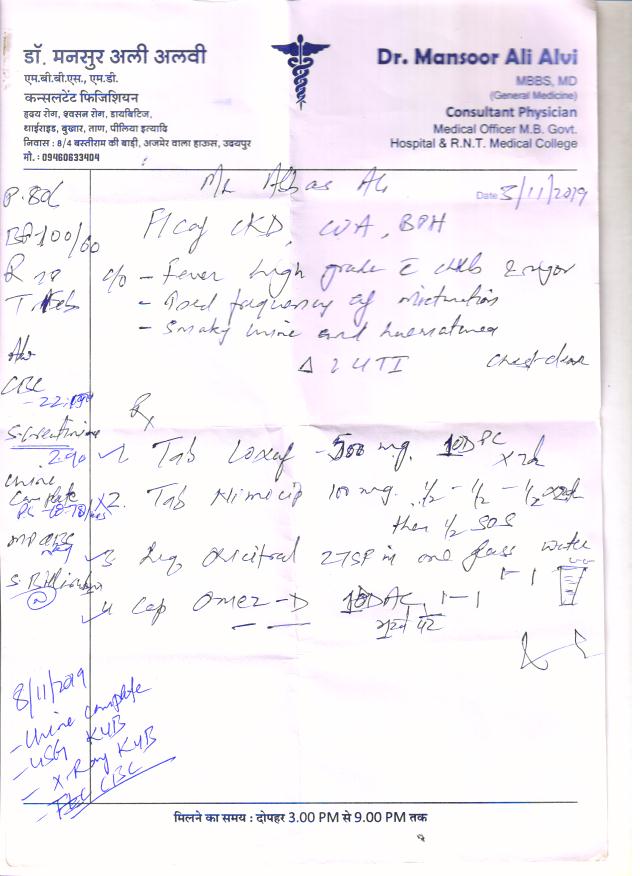 डॉ. मनसुर अली अलवी
एम.बी.बी.एस., एम.डी.
कन्सलटेंट फिजिशियन
हृदय रोग, श्वसन रोग, डायबिटिज,
थाईराइड, बुखार, ताण, पीलिया इत्यादि
निवास : 8/4 बस्तीराम की बाड़ी, अजमेर वाला हाऊस, उदयपुर
मो. : 09460633404
Dr. Mansoor Ali Alvi
MBBS, MD
(General Medicine)
Consultant Physician
Medical Officer M.B. Govt.
Hospital & R.N.T. Medical College
Mr Abbas Ali
Date 5/11/2019
P. 80/
BP 100/60
R
T
CBC
S. Creatinine
2.90
Urine
Complete
MP
neg
S. Bilirubin
F/C of CKD, CVA, BPH
c/o – Fever high grade c chills & rigor
– frequency of micturition
– Smoky urine and haematuria
Δ ? UTI Chest clear
Rx
Tab Loxof – 500 mg. 1OD PC
2. Tab Nimocip 100 mg. 1/2 – 1/2 – 1/2
then 1/2 SOS
3 Liq 2TSP in one glass water
1–1
4 Cap Omez-D AC 1–1
8/11/2019
– Urine complete
– USG KUB
– X-Ray KUB
CBC
मिलने का समय : दोपहर 3.00 PM से 9.00 PM तक